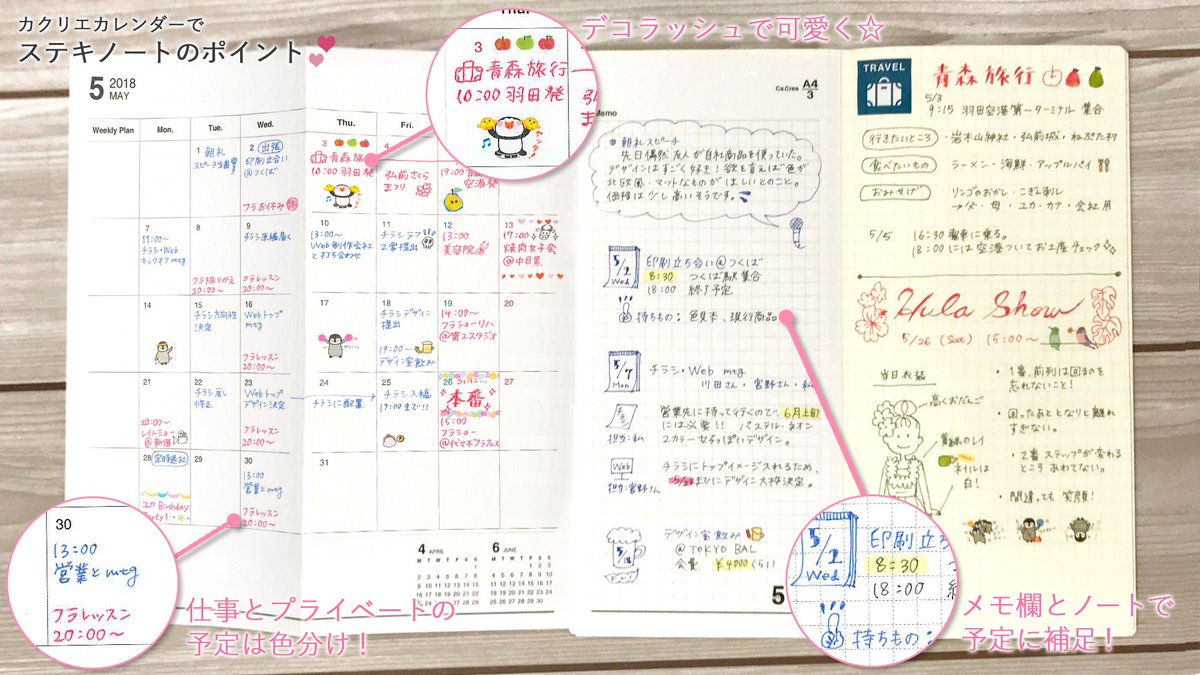 カクリエカレンダーで
ステキノートのポイント
デコラッシュで可愛く☆
仕事とプライベートの
予定は色分け！
メモ欄とノートで
予定に補足！
5 2018
MAY
Weekly Plan Mon. Tue. Wed. Thu. Fri.
1 朝礼
スピーチ当番
2 出張
印刷立合い
@つくば
フラお休み
3
青森旅行
10:00 羽田発
弘前さくら
まつり
19:00 青森
空港発
7
11:00〜
チラシ・Web
キックオフmtg
8
フラ振りかえ
20:00〜
9
チラシ原稿届く
フラレッスン
20:00〜
10
10:00〜
Web制作会社
と打ち合わせ
11
チラシラフ
2案提出
12
13:00
美容院
13
17:00〜
焼肉女子会
@中目黒
14
15
チラシ方向性
決定
16
Webトップ
mtg
フラレッスン
20:00〜
17
18
チラシデザイン
提出
19:00〜
デザイン室飲み
19
14:00〜
フラショーリハ
@第2スタジオ
20
21
20:00〜
レイトショー
@新宿
22
チラシ戻し
修正
23
Webトップ
デザイン決定
フラレッスン
20:00〜
24
チラシに配置
25
チラシ入稿
19:00まで!!
26
本番
15:00
フラショー
@代々木フラフェス
27
28 定時退社
ユカ Birthday
Party!
29
30
13:00
営業とmtg
フラレッスン
20:00〜
31
4 APRIL 6 JUNE
M T W T F S S
Ca.Crea A4
3
Memo
朝礼スピーチ
先日偶然友人が自社商品を使っていた。
デザインはすごく好き！欲を言えば色が
北欧風・マットなものがほしいとのこと。
価格は少し高いそうです。
5/2
Wed
印刷立ち合い@つくば
8:30 つくば駅集合
18:00 終了予定
持ちもの：色見本、現行商品
5/7
Mon
チラシ・Web mtg
川田さん・宮野さん・私
チラシ
担当：私
営業先に持って行くので、6月上旬
には必要!! パステル・ネオン
2カラー女子っぽいデザイン。
Web
担当：宮野さん
チラシにトップイメージ入れるため、
までにデザイン大枠決定。
5/18
デザイン室飲み
@TOKYO BAL
会費 ¥4000
5
TRAVEL
青森旅行
5/3
9:15 羽田空港第一ターミナル 集合
行きたいところ ・岩木山神社・弘前城・ねぷた村
食べたいもの ラーメン・海鮮・アップルパイ
おみやげ リンゴのおかし・こぎん刺し
→父・母・ユカ・カナ・会社用
5/5 16:30 電車に乗る。
18:00には空港ついてお土産チェック
Hula Show
5/26 (Sat) 15:00〜
当日衣装
高くおだんご
黄緑のレイ
ネイルは
白！
・1番、前列は回るのを
忘れないこと！
・回ったあととなりと離れ
すぎない。
・2番ステップが変わる
ところ あわてない。
・間違っても 笑顔！